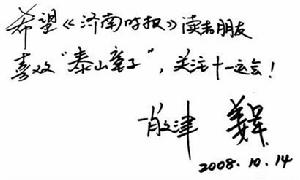 希望《济南时报》读者朋友
喜欢“泰山童子”,关注十一运会!
殷津 姜昆
2008.10.14